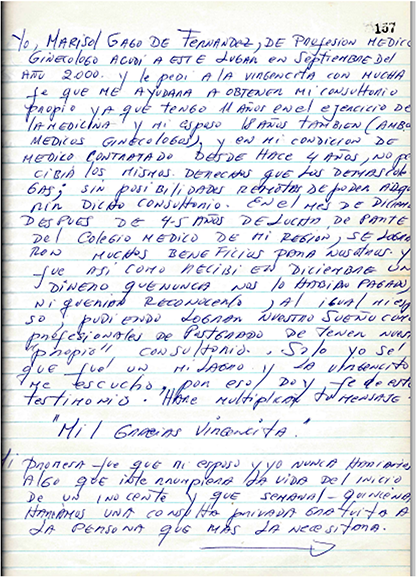 157
Yo, MARISOL GAGO DE FERNANDEZ, DE PROFESION MEDICO
GINECOLOGO ACUDI A ESTE LUGAR EN SEPTIEMBRE DEL
AÑO 2000. y le pedi A LA VIRGENCITA CON MUCHA
fe QUE ME AYUDARA A OBTENER MI CONSULTORIO
PROPIO YA QUE TENGO 11 AÑOS EN EL EJERCICIO DE
LA MEDICINA y MI ESPOSO 18 AÑOS TAMBIEN (AMBOS
MEDICOS GINECOLOGOS), y EN MI CONDICION DE
MEDICO CONTRATADO DESDE HACE 4 AÑOS, NO PER
CIBIA LOS MISMOS DERECHOS QUE LOS DEMAS COLE
GAS; SIN POSIBILIDADES REMOTAS DE PODER ADQUI
RIR DICHO CONSULTORIO. EN EL MES DE DICIEMB
DESPUES DE 4-5 AÑOS DE LUCHA, DE PARTE
DEL COLEGIO MEDICO DE MI REGION, SE LOGRA
RON MUCHOS BENEFICIOS PARA NOSOTROS. Y
fue ASI, COMO RECIBI EN DICIEMBRE UN
DINERO QUE NUNCA NOS LO HABIAN PAGADO
NI QUERIDO RECONOCERLO, AL IGUAL MI ESPO
SO PUDIENDO LOGRAR NUESTRO SUEÑO COMO
PROFESIONALES DE POSTGRADO DE TENER NUES
"PROPIO" CONSULTORIO. Solo yo SÉ
QUE fue UN MILAGRO y LA VIRGENCITA
ME ESCUCHO, POR ESO, DOY fe DE ESTE
TESTIMONIO. HARE MULTIPLICAR TU MENSAJE.
"MIL GRACIAS VIRGENCITA."
Mi PROMESA fue QUE MI ESPOSO y yo NUNCA HARIAMOS
ALGO QUE INTERRUMPIERA LA VIDA DEL INICIO
DE UN INOCENTE y QUE SEMANAL-QUINCENAL
HARIAMOS UNA CONSULTA PRIVADA GRATUITA A
LA PERSONA QUE MAS LA NECESITARA.